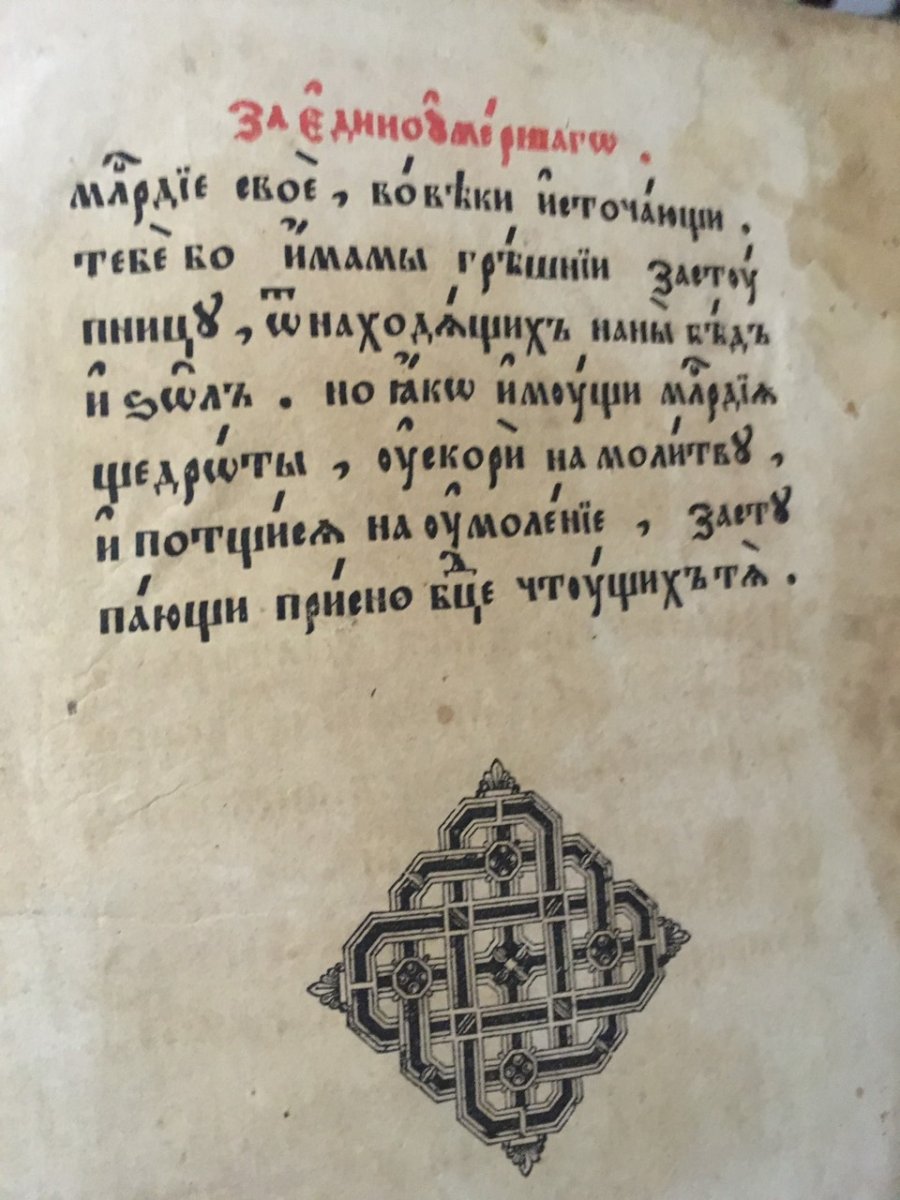 За є҆диноꙋ҆ме́ршагѡ .
млⷭ҇рдїе своѐ , во́вѣки и҆сточа́ющи .
тебѐ бо и҆́мамы грѣ́шнїи застоу́
пницꙋ , ѿнаходѧ́щихъ наны̀ бѣ́дъ
и҆ ѕѡ҆лъ . но ꙗ҆́кѡ и҆моу́щи млⷭ҇рдїѧ
щедрѡ́ты , оу҆скорѝ на моли́твꙋ ,
и҆ потщи́сѧ на оу҆моле́нїе , застꙋ
па́ющи при́сно бцⷣе чтоу́щихътѧ̀ .